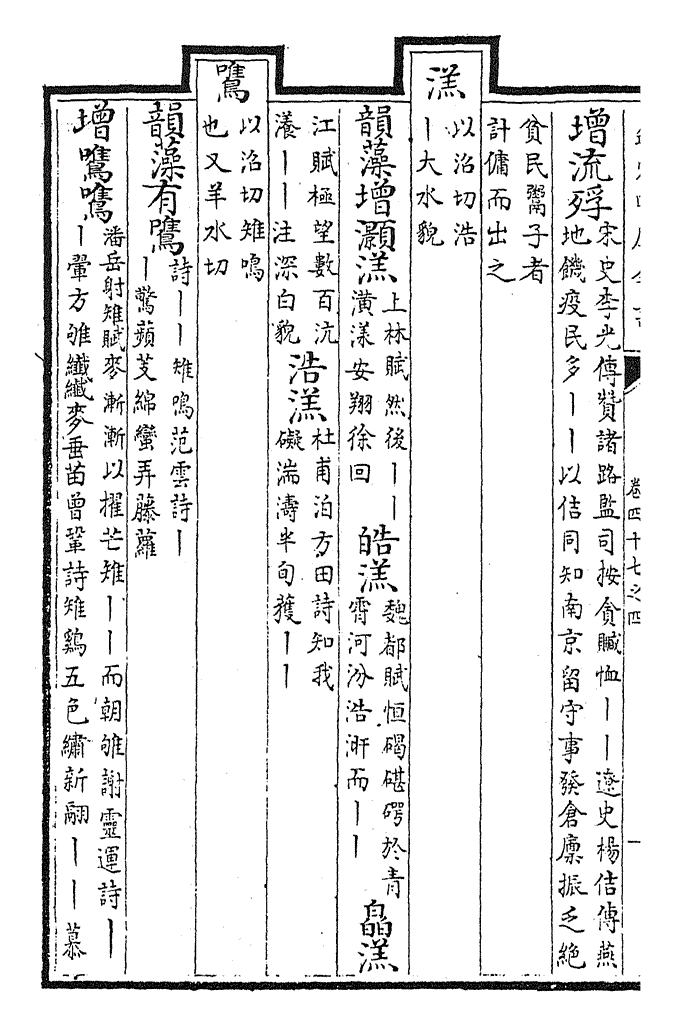 卷四十七之四
增流殍宋史李光傳贊諸路監司按貪贓恤丨丨遼史楊佶傳燕
地饑疫民多丨丨以佶同知南京留守事發倉廩振乏絶
貧民鬻子者
計傭而出之
溔
以沼切浩
丨大水貌
韻藻增灝溔上林賦然後丨丨
潢漾安翔徐回
皓溔魏都賦恒碣碪於青
霄河汾浩涆而丨丨
皛溔
江賦極望數百沆
瀁丨丨注深白貌
浩溔杜甫泊方田詩知我
礙湍濤半旬獲丨丨
鷕
以沼切雉鳴
也又羊水切
韻藻有鷕詩丨丨雉鳴范雲詩丨
丨驚蘋芰綿蠻弄藤蘿
增鷕鷕潘岳射雉賦麥漸漸以擢芒雉丨丨而朝雊謝靈運詩丨
丨翬方雊纖纖麥垂苗曾鞏詩雉鷄五色繡新翮丨丨慕